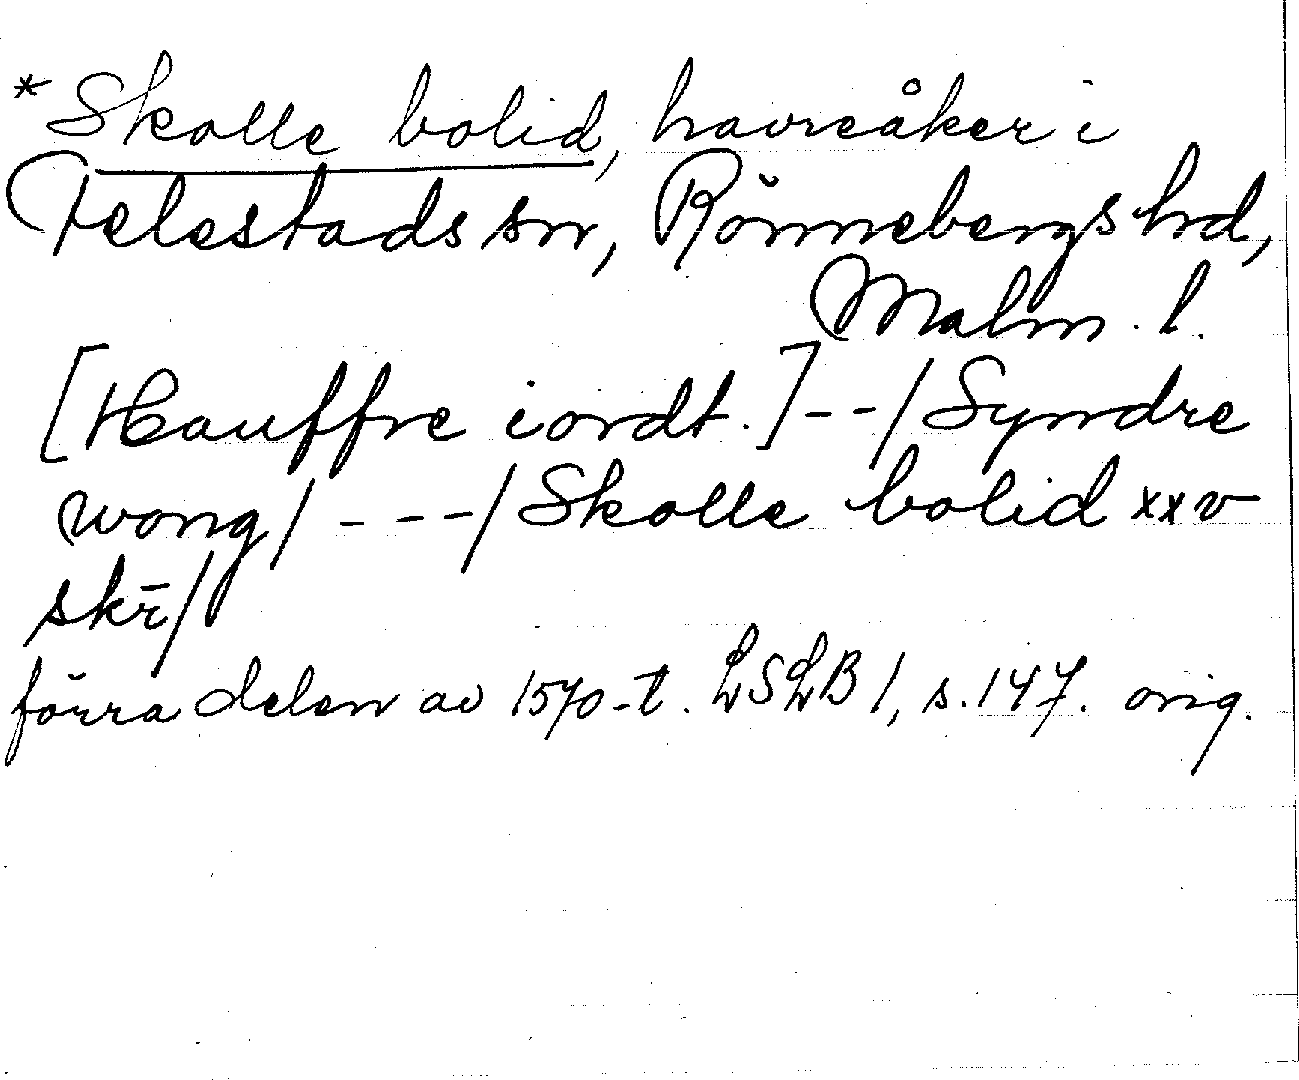 *Skalle bolid, havreåker i
Felestads sn, Rönnebergs hd,
Malm. l.
[Hauffre iordt.]--/Syndre
wong/ ---/Skalle bolid xxv
skr̄/
förra delen av 1570-t. LSLB 1, s.147. orig.